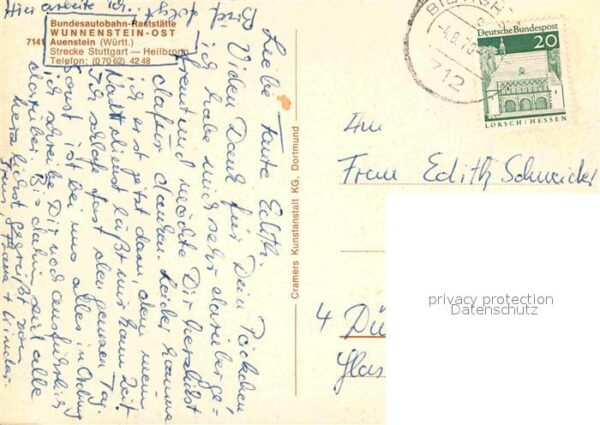 Hier arbeite ich.
Bundesautobahn-Raststätte
WUNNENSTEIN-OST
7141 Auenstein (Württ.)
Strecke Stuttgart — Heilbronn
Telefon: (0 70 62) 42 48
Brief folgt.
Liebe Tante Edith.
Vielen Dank für Dein Päckchen
ich habe mich sehr darüber ge-
freut und möchte Dir herzlichst
dafür danken. Leider komme
ich erst jetzt dazu, denn mein
Nachtdienst läßt mir kaum Zeit
Ich schlafe fast den ganzen Tag.
Sonst ist bei uns alles in Ordnung
ich schreibe Dir noch ausführlich
darüber. Bis dahin seid alle
herzlichst gegrüßt von
Cramers Kunstanstalt KG, Dortmund
BIETIGH
-4.8.70
712
Deutsche Bundespost
20
LORSCH/HESSEN
Frau Edith Schneider
4 Dü
Glas
privacy protection
Datenschutz